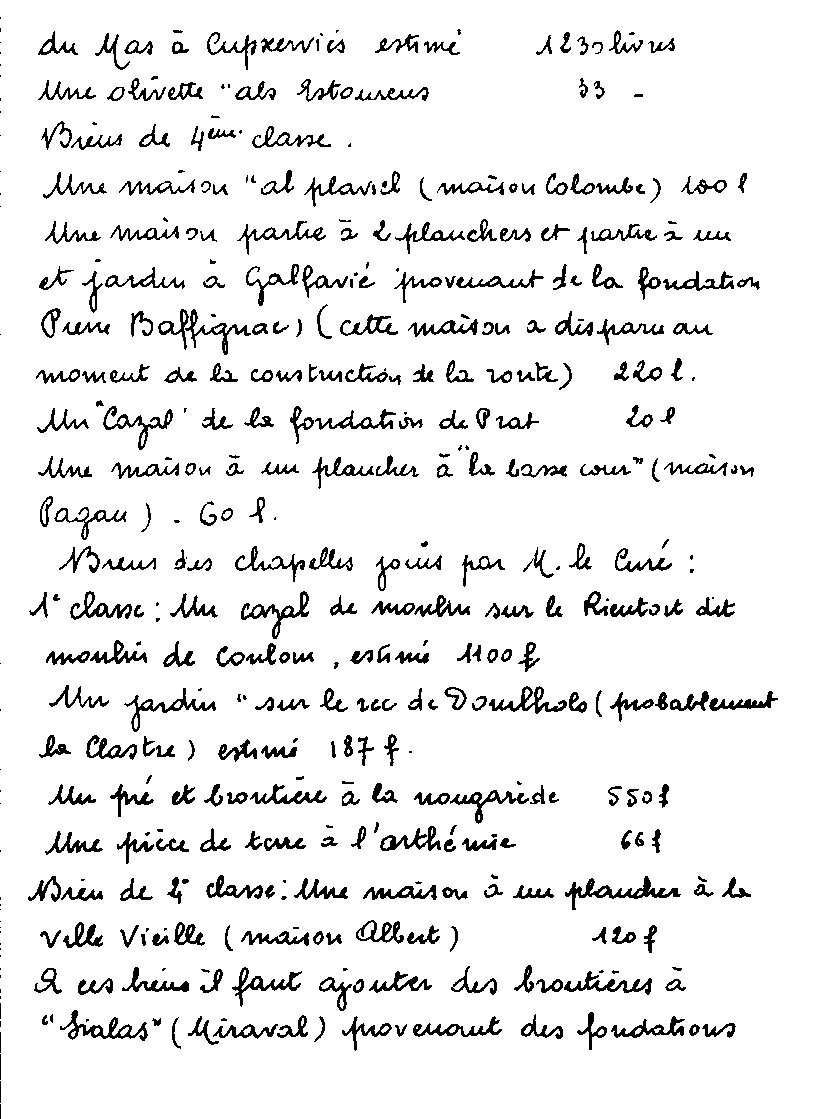 du Mas à Cupserviés estimé 1230 livres
Une olivette "als Estoureus 33 -
Biens de 4ème classe.
Une maison "al plaviel (maison Colombe) 100 l
Une maison partie à 2 planchers et partie à un
et jardin à Galfavié provenant de la fondation
Pierre Baffignac) (cette maison a disparu au
moment de la construction de la route) 220 l.
Un "Cazal" de la fondation de Prat 20 l
Une maison à un plancher à "la basse cour" (maison
Pagau). 60 l.
Biens des chapelles jouis par M. le Curé :
1° classe : Un cazal de moulin sur le Rieutort dit
moulin de Coulom, estimé 1100 f
Un jardin "sur le rec de Dourlhols (probablement
la Clastre) estimé 187 f.
Un pré et broutière à la nougarède 550 f
Une pièce de terre à l'arthémie 66 f
Bien de 2° classe : Une maison à un plancher à la
Ville Vieille (maison Albert) 120 f
A ces biens il faut ajouter des broutières à
"Sialas" (Miraval) provenant des fondations